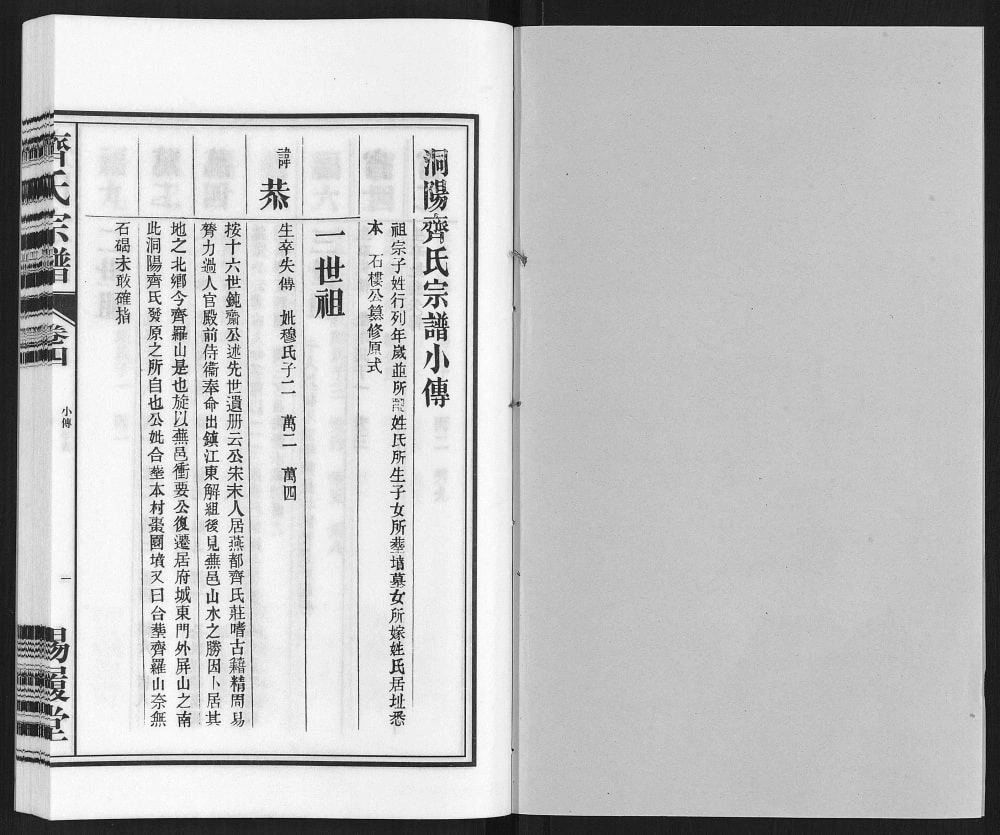 洞陽齊氏宗譜小傳
祖宗子姓行列年歲並所 姓氏所生子女所塟墳墓女所嫁姓氏居址悉
本　石樓公篡修原式
一世祖
諱　恭
生卒失傳　妣穆氏子二　萬二　萬四
按十六世鈍齋公述先世遺册云公宋末人居燕都齊氏莊嗜古籍精周易
膂力過人官殿前侍衞奉命出鎮江東解組後見蕪邑山水之勝因卜居其
地之北鄉今齊羅山是也旋以蕪邑衝要公復遷居府城東門外屏山之南
此洞陽齊氏發原之所自也公妣合塟本村棗園墳又曰合塟齊羅山奈無
石碣未敢確指
齊氏宗譜
卷四
小傳
一
易履堂